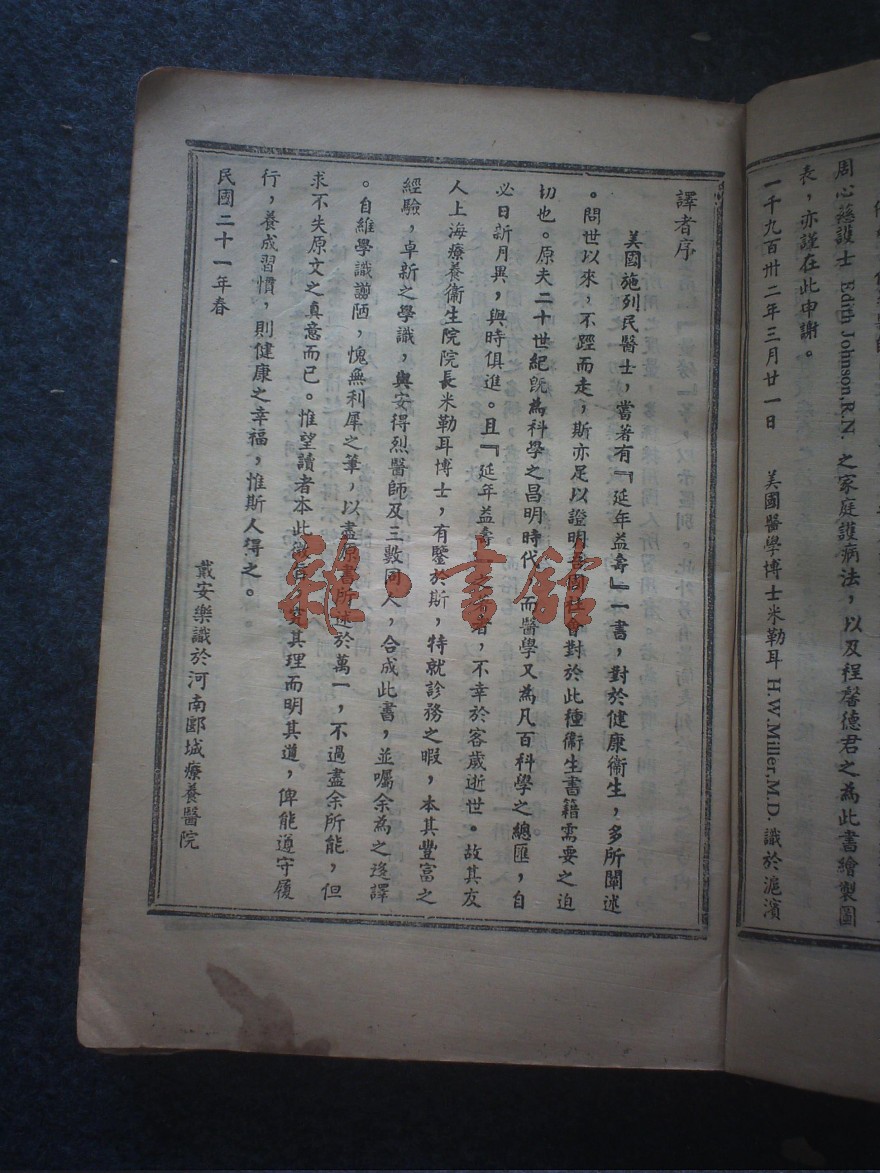 周心慈護士 Edith Johnson, R.N. 之家庭護病法，以及程馨德君之為此書繪製圖
表，亦謹在此申謝。
一千九百卅二年三月廿一日　美國醫學博士米勒耳 H.W.Miller, M.D. 識於滬濱
譯者序
美國施列民醫士，嘗著有『延年益壽』一書，對於健康衛生，多所闡述
。問世以來，不脛而走，斯亦足以證明吾國社會對於此種衛生書籍需要之迫
切也。原夫二十世紀既為科學之昌明時代，而醫學又為凡百科學之總匯，自
必日新月異，與時俱進。且『延年益壽』之著者，不幸於客歲逝世。故其友
人上海療養衛生院院長米勒耳博士，有鑒於斯，特就診務之暇，本其豐富之
經驗，卓新之學識，與安得烈醫師及三數同人，合成此書，並囑余為之迻譯
。自維學識謭陋，愧無利犀之筆，以盡原書所述於萬一，不過盡余所能，但
求不失原文之真意而已。惟望讀者本此微旨，究其理而明其道，俾能遵守履
行，養成習慣，則健康之幸福，惟斯人得之。
民國二十一年春
戴安樂識於河南郾城療養醫院
雜·書館